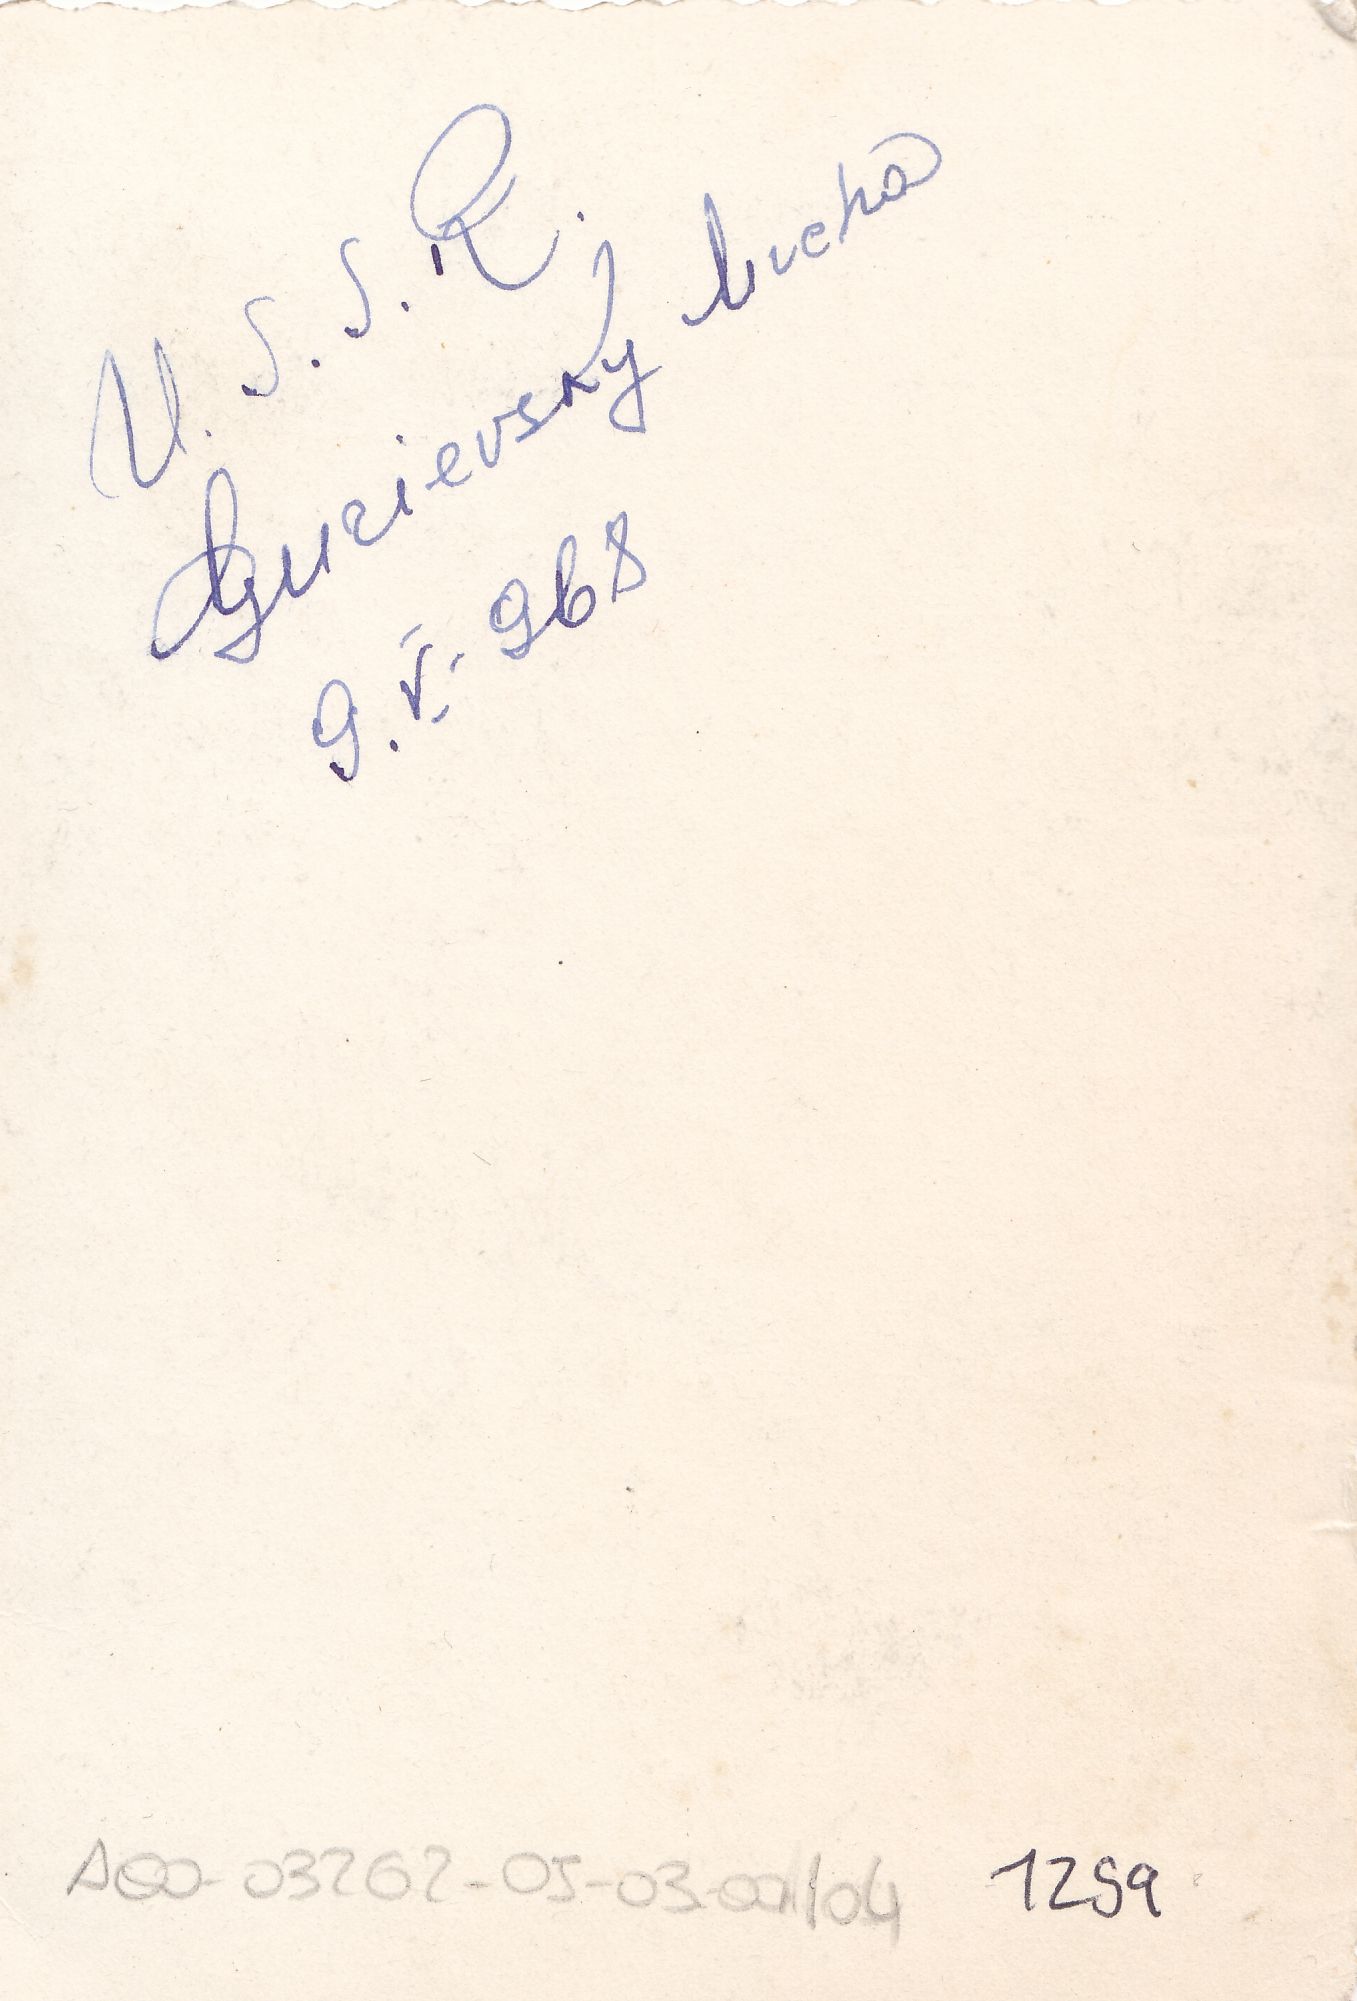 U.S.S.R.
Gurievsky bucha
9.V.968
A00-03262-05-03-001/04 1259